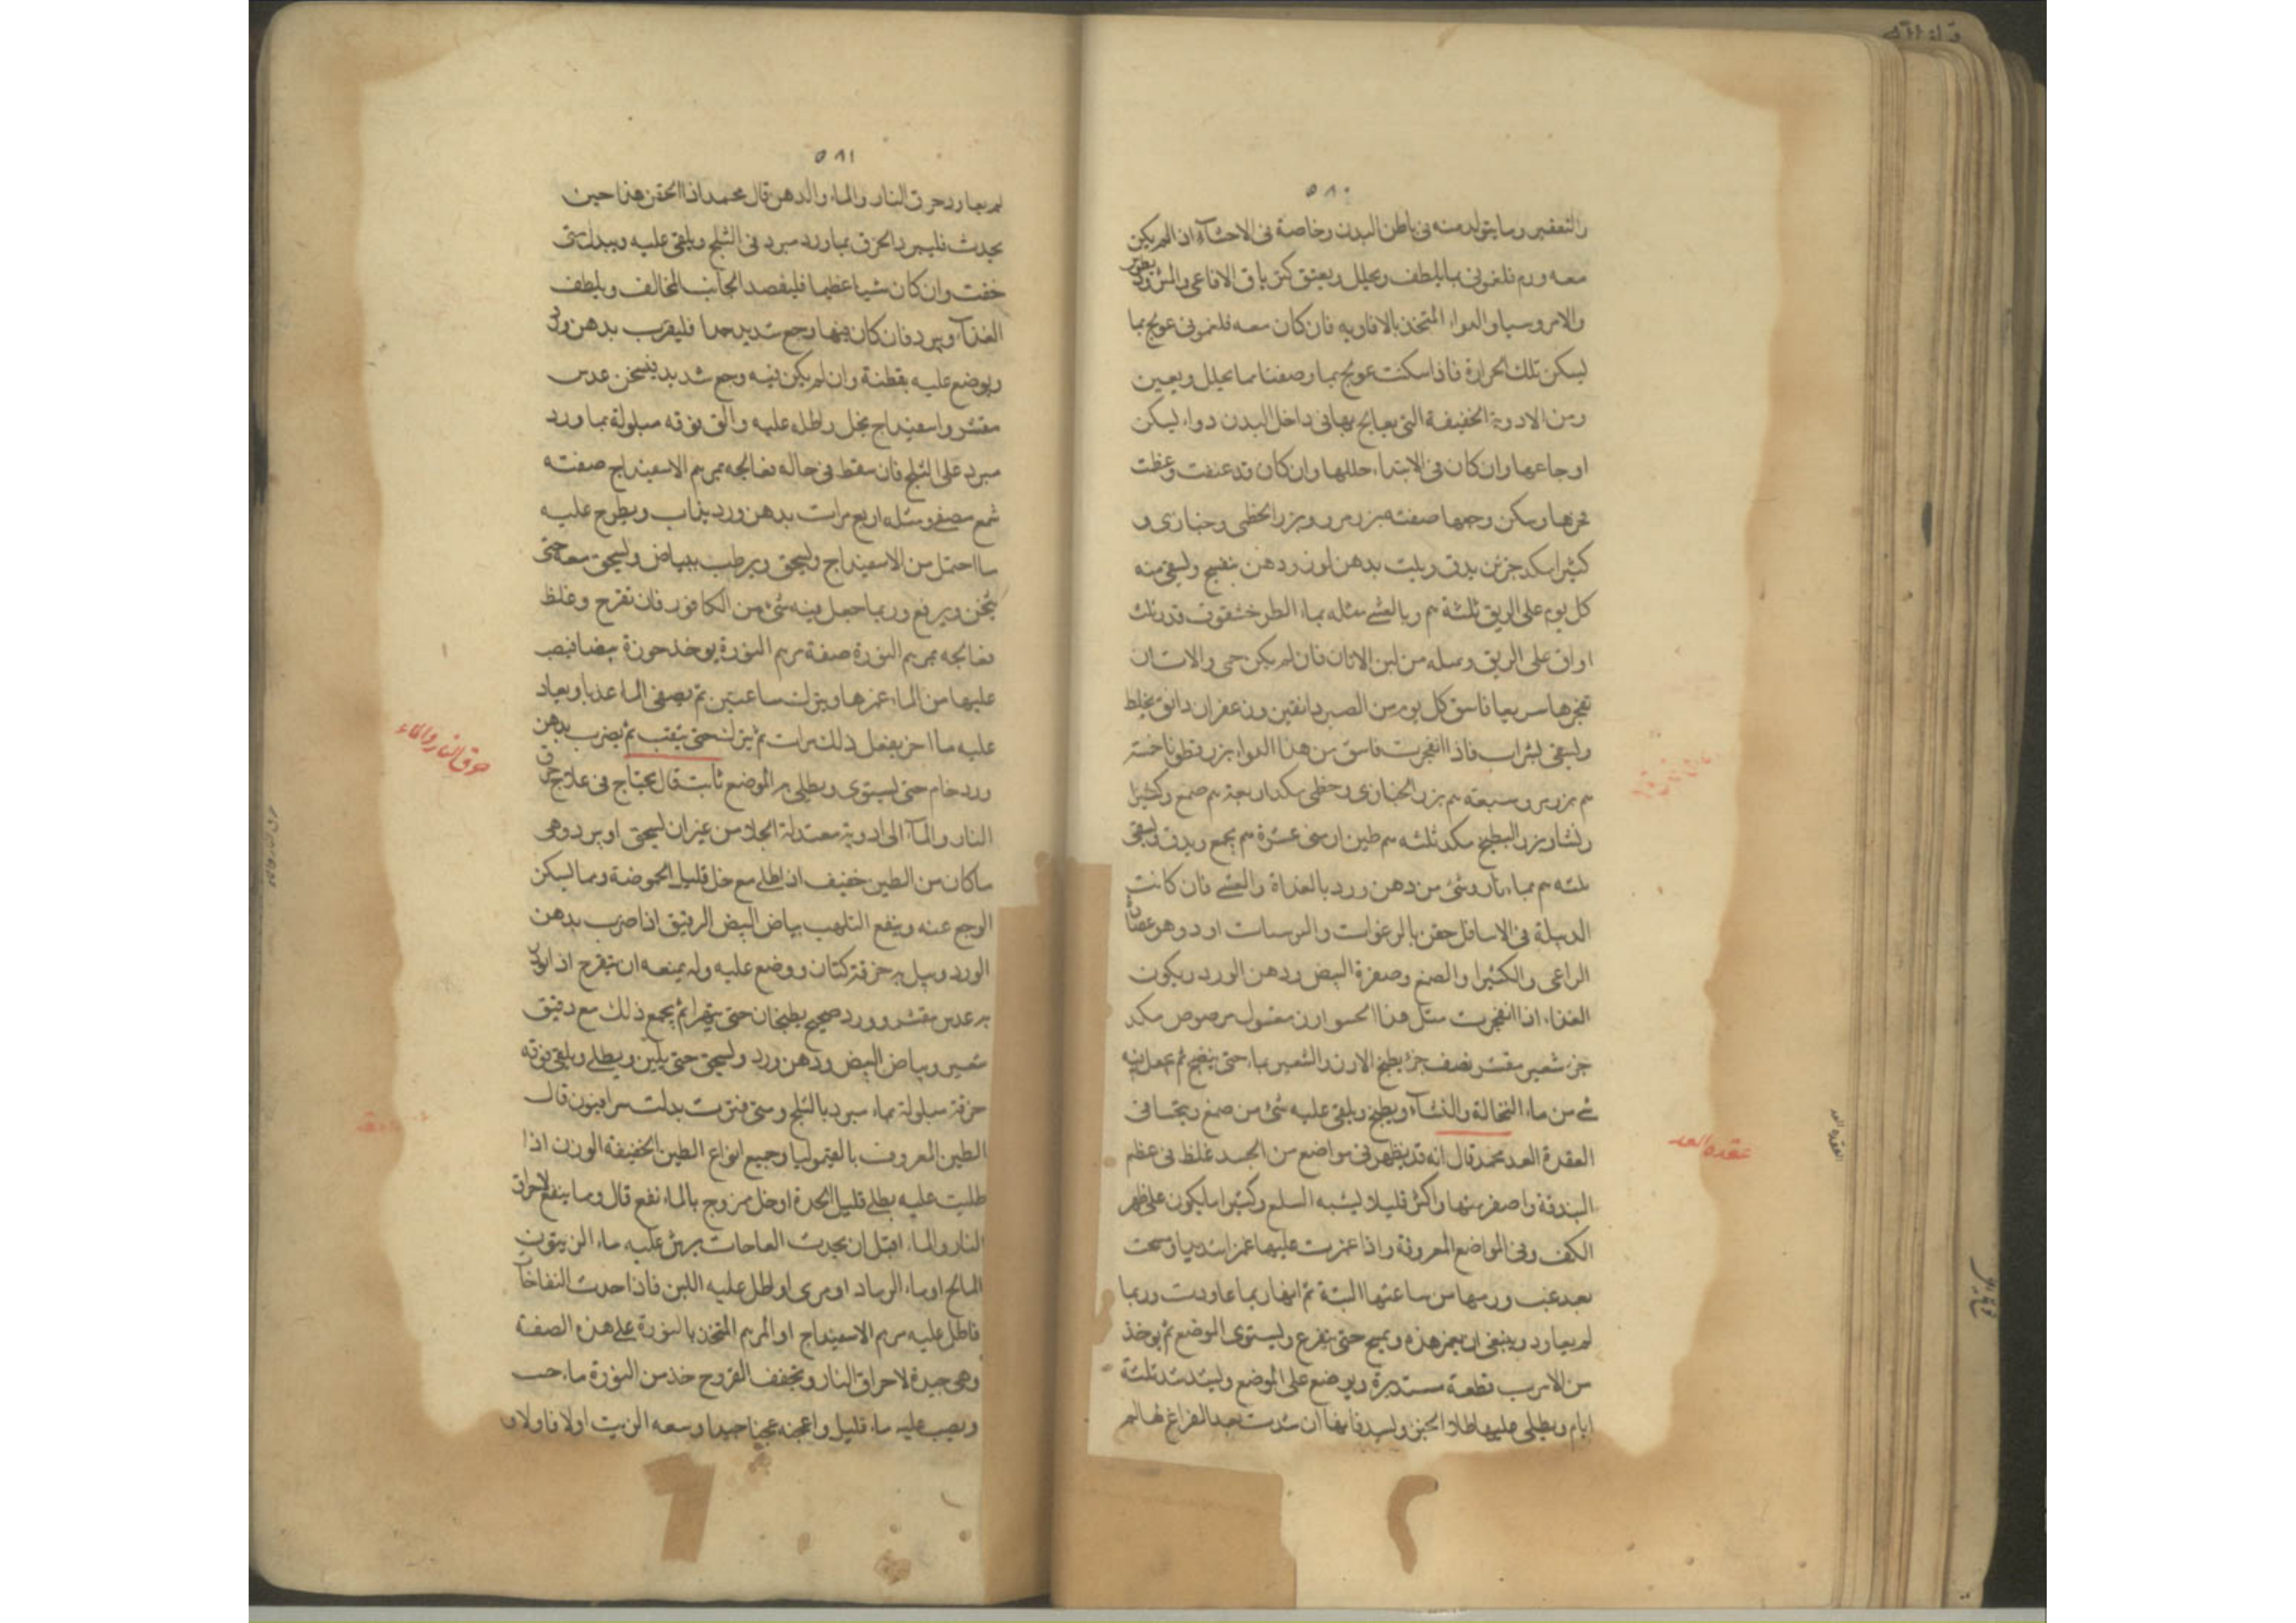 ٥٨٠
والتعقير وما يتولد منه في باطن البدن وخاصة في الاحشآء ان لم يكن
معه ورم فلغموني بما يلطف ويحلل ويعتق كترياق الافاعي والمثروديطوس
والامروسيا والدواء المتخذ بالافاويه فان كان معه فلغموني عولج بما
يسكن تلك الحرارة فاذا سكنت عولج بما وصفنا مما يحلل ويعين
ومن الادوية الخفيفة التي يعالج بها في داخل البدن دواء يسكن
اوجاعها وان كان في الابتداء حللها وان كان قد عنفت وعظت
وسكن وجعها صفته بزر مرو وبزر الخطمي وخبازى و
كثيرا مكد جزئن يدق ويلت بدهن لوز ودهن بنفسج ويسقى منه
كل يوم على الريق ثلثة م وبالعشي مثله بماء الطرخشقوق قدر ثلث
اواق على الريق ومثله من لبن الاتان فان لم يكن حمى والاتان
تفجرها سريعا فاسق كل يوم من الصبر دانقين وزعفران دانق يخلط
ويسقى بشراب فاذا انفجرت فاسق من هذا الدواء بزر قطونا خمسة
م بزر مرو سبعة م بزر الخبازى وخطمي مكد اربعة م صمغ وكثيرا
ونشا وبزر البطيخ مكد ثلثه م طين ارمني عشرة م يجمع ويدق ويسقى
ثلثه م بماء بارد وشئ من دهن ورد بالغداة والعشي فان كانت
الدبيلة في الاسافل حقن بالرغوات والمرسات او دوهن عصا
الراعي والكثيرا والصمغ وصفرة البيض ودهن الورد ويكون
الغذاء اذا انفجرت مثل هذا الحسو ارز مغسول مرصوص مكد
جز شعير مقشر نصف جز يطبخ الارز والشعير بماء حتى ينضج ثم يجعل فيه
شي من ماء النخالة والنشآء ويطبخ ويلقى عليه شئ من صمغ ويتحسا في
العقدة الغدد محمد قال انه قد يظهر في مواضع من الجسد غلظ في عظم
البندقة واصغر منها واكثر قليلا يشبه السلع وكثيرا ما يكون على ظهر
الكف وفي المواضع المعروفة واذا غمزت عليها غمزا شديدا وسحت
بعد غيب ورمها من ساعتها البتة ثم انها ربما عاودت وربما
لم يعاود وينبغي ان يغمز هذه ويمسح حتى تفرغ ويستوى الموضع ثم يوخذ
من الاسرب قطعة مستديرة ويوضع على الموضع ويشد شد ثلثة
ايام ويطلى عليها طلاء الجبر ويشد فانها ان شدت بعد الفراغ لها لم
عقده الغدد
٥٨١
لم يعاود حرق النار والماء والدهن قال محمد اذا الحقن هذا حين
يحدث فليبرد الحرق بماورد مبرد في الثلج ويلقى عليه ويبدل متى
خفت وان كان شيا عظيما فليفصد الجانب المخالف ويلطف
الغذآء ويبرد فان كان فيها وجع شديد جدا فليقرب بدهن ورد
ويوضع عليه بقطنة وان لم يكن فيه وجع شديد فيسخن عدس
مقشر واسفيداج بخل واطله عليه والق فوقه مبلولة بماورد
مبرد على الثلج فان سقط في حاله فعالجه بمرهم الاسفيداج صفته
شمع مصفى ومثله اربع مرات بدهن ورد يذاب ويطرح عليه
ما احتمل من الاسفيداج ويسحق ويرطب ببياض ويسحق معه حتى
يثخن ويرفع وربما جعل فيه شئ من الكافور فان تقرح وغلظ
فعالجه بمرهم النورة صفة مرهم النورة يوخذ جوزة بيضا فيصب
عليها من الماء غمرها ويترك ساعتين ثم يصفى الماء عذبا ويعاد
عليه ما اخر يفعل ذلك مرات ثم يترك حتى يثقب ثم يضرب بدهن
ورد خام حتى يستوى ويطلى به الموضع ثابت قال يحتاج في علاج حرق
النار والمآء الى ادوية معتدلة الجلا من غير ان يسحق او يبرد وهى
ماكان من الطين خفيف اذا طلي مع خل قليل الحموضة ومما يسكن
الوجع عنه وينفع التلهب بياض البيض الرقيق اذا ضرب بدهن
الورد ويبل به خرقة كتان ووضع عليه وله يمنعه ان يتقرح اذا لون
به عدس مقشر وورد صحيح يطبخان حتى يتهرا ثم يجمع ذلك مع دقيق
شعير وبياض البيض ودهن ورد ويسحق حتى يلين ويطلي ويلقى فوقه
خرقة مبلولة بماء مبرد بالثلج ومتى فترت بدلت سرافيون قال
الطين المعروف بالقيموليا وجميع انواع الطين الخفيفة الوزن اذا
طليت عليه يطلي قليل الحدة او خل ممزوج بالماء نفع قال ومما ينفع لاحراق
النار والماء اقبل ان يحدث العاحات يرش عليه ماء الزيتون
المالح او ماء الرماد او مرى او طل عليه اللبن فاذا حدث النفاخات
فاطل عليه مرهم الاسفيداج او المرهم المتخذ بالنورة على هذه الصفة
وهى جيدة لاحراق النار وتجفف القروح خذ من النورة ماء حب
ويصب عليه ماء قليل واعجنه عجينا جيدا ومعه الزيت اولا فاولا و
حرق النار والماء